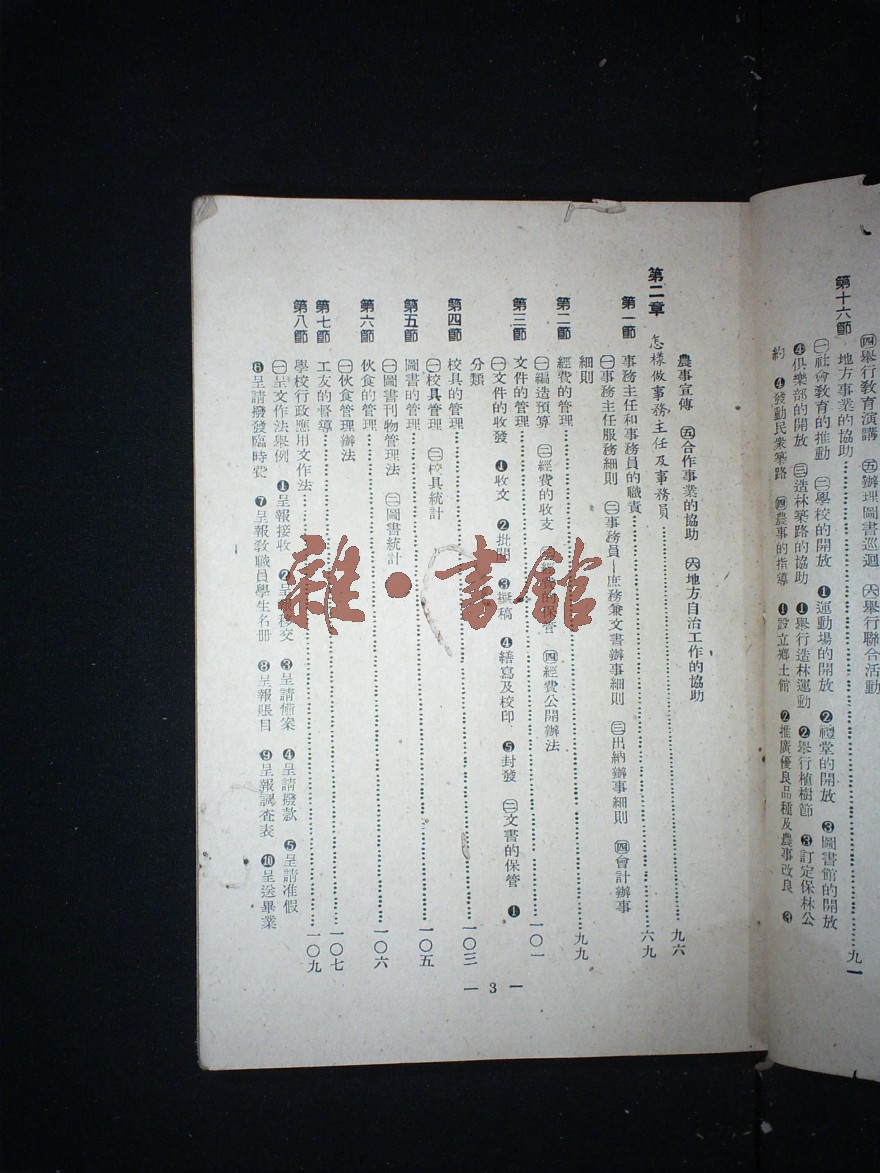 ㈣舉行教育演講　㈤辦理圖書巡迴　㈥舉行聯合活動
第十六節　地方事業的協助……九一
㈠社會教育的推動　㈡學校的開放　❶運動場的開放　❷禮堂的開放　❸圖書館的開放
❹俱樂部的開放　㈢造林築路的協助　❶舉行造林運動　❷舉行植樹節　❸訂定保林公
約　❹發動民衆築路　㈣農事的指導　❶設立鄉土館　❷推廣優良品種及農事改良　❸
農事宣傳　㈤合作事業的協助　㈥地方自治工作的協助
第二章　怎樣做事務主任及事務員……九六
第一節　事務主任和事務員的職責……六九
㈠事務主任服務細則　㈡事務員—庶務兼文書辦事細則　㈢出納辦事細則　㈣會計辦事
細則
第二節　經費的管理……九九
㈠編造預算　㈡經費的收支　的保管　㈣經費公開辦法
第三節　文件的管理……一〇一
㈠文件的收發　❶收文　❷批閱　❸擬稿　❹繕寫及校印　❺封發　㈡文書的保管　❶
分類
第四節　校具的管理……一〇三
㈠校具管理　㈡校具統計
第五節　圖書的管理……一〇五
㈠圖書刊物管理法　㈡圖書統計
第六節　伙食的管理……一〇六
㈠伙食管理辦法
第七節　工友的督導……一〇七
第八節　學校行政應用文作法……一〇九
㈠呈文作法舉例　❶呈報接收　❷呈報移交　❸呈請備案　❹呈請撥款　❺呈請准假
❻呈請撥發臨時費　❼呈報教職員學生名册　❽呈報賬目　❾呈報調查表　❿呈送畢業
— 3 —
雜·書館